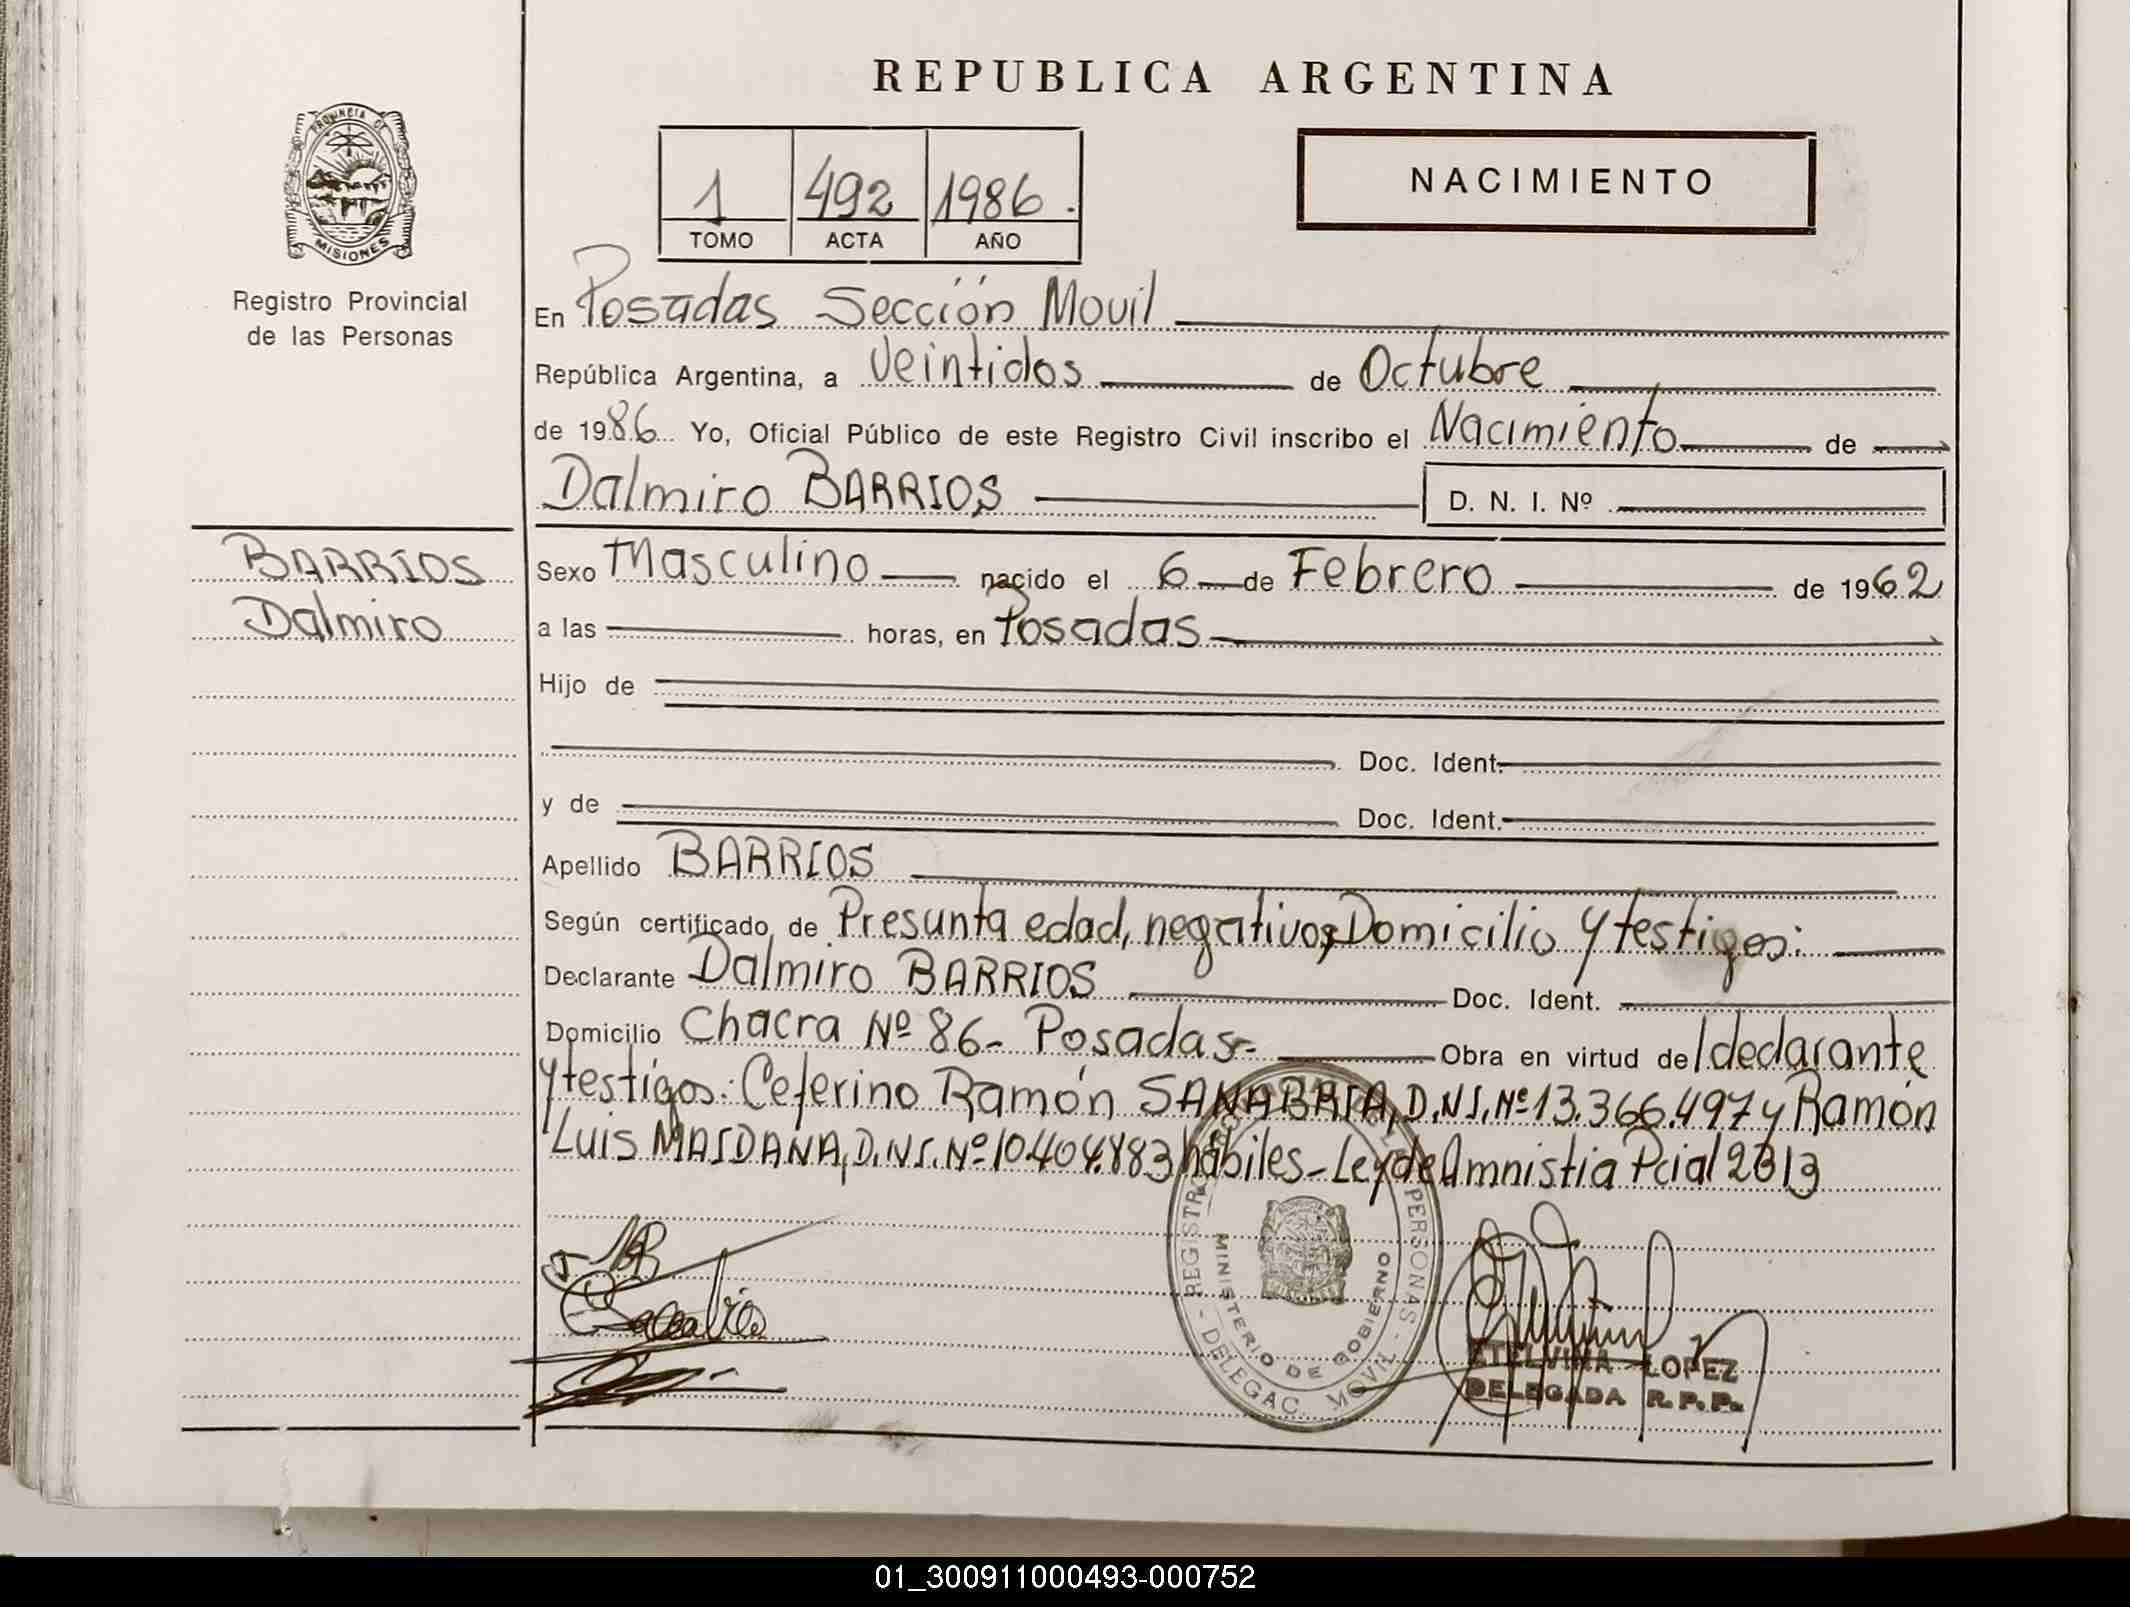 REPUBLICA ARGENTINA
PROVINCIA DE
MISIONES
Registro Provincial
de las Personas
1 492 1986.
TOMO ACTA AÑO
NACIMIENTO
En Posadas Sección Movil
República Argentina, a veintidos de Octubre
de 1986 Yo, Oficial Público de este Registro Civil inscribo el Nacimiento de
Dalmiro BARRIOS D. N. I. Nº
BARRIOS
Dalmiro
Sexo Masculino nacido el 6 de Febrero de 1962
a las horas, en Posadas
Hijo de
Doc. Ident.
y de Doc. Ident.
Apellido BARRIOS
Según certificado de Presunta edad, negativo, Domicilio y testigos:
Declarante Dalmiro BARRIOS Doc. Ident.
Domicilio Chacra Nº 86- Posadas- Obra en virtud de l declarante
y testigos: Ceferino Ramón SANABRIA, D.N.I. Nº 13.366.497 y Ramón
Luis MAIDANA, D.N.I. Nº 10.404.883 hábiles - Ley de Amnistia Pcial 2313
REGISTRO PERSONAS - DELEGAC. MOVIL
MINISTERIO DE GOBIERNO
ETELVINA LOPEZ
DELEGADA R. P. P.
01_300911000493-000752